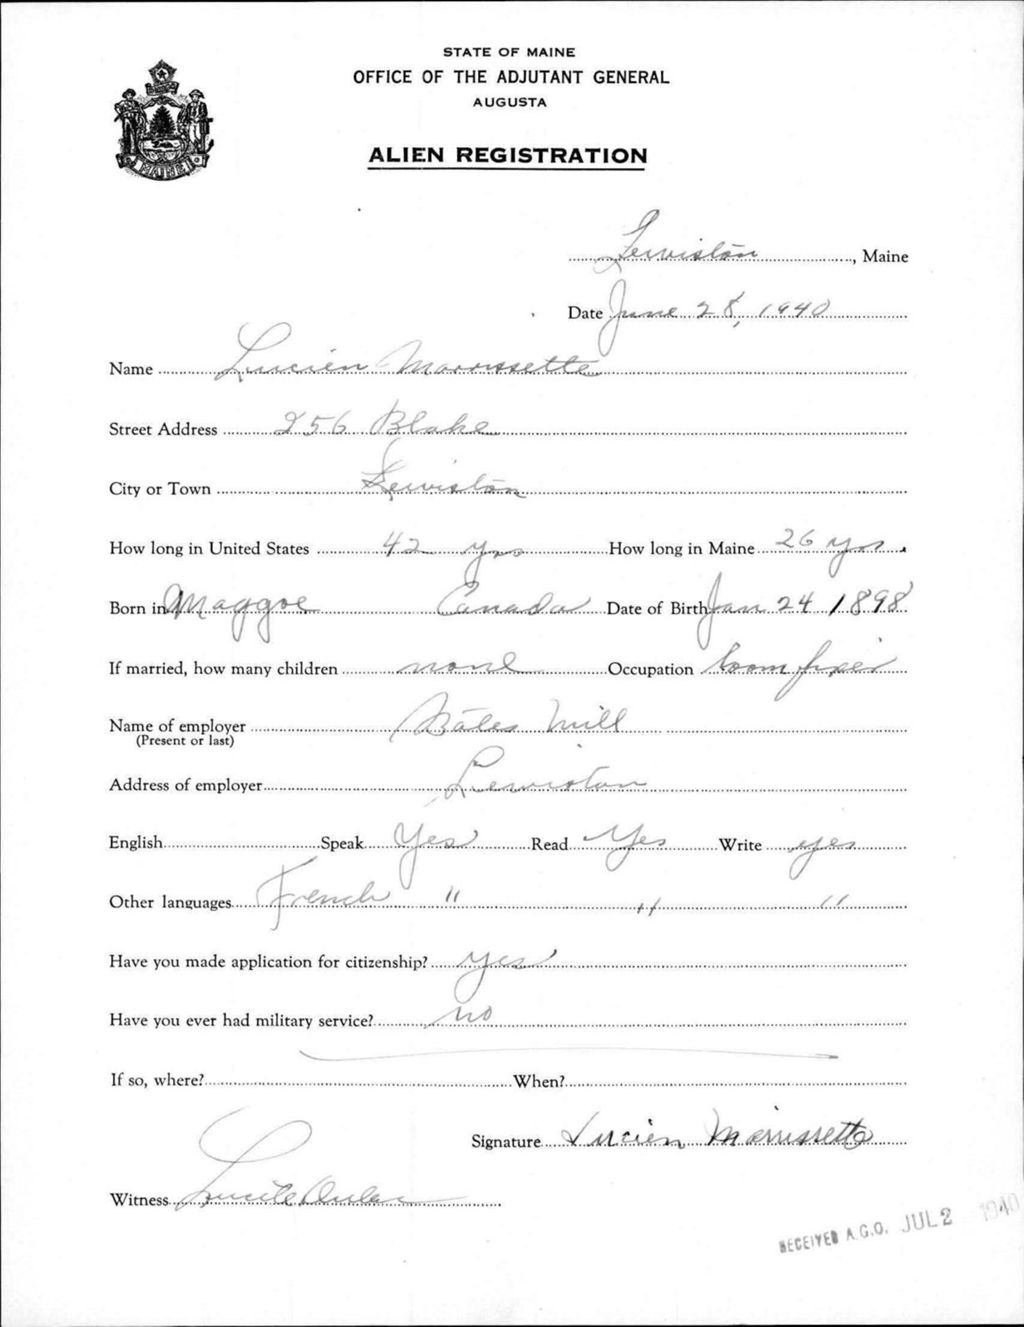 STATE OF MAINE
OFFICE OF THE ADJUTANT GENERAL
AUGUSTA
ALIEN REGISTRATION
MAINE
Lewiston, Maine
Date June 28, 1940
Name Lucien Morrissette
Street Address 256 Blake
City or Town Lewiston
How long in United States 42 yrs How long in Maine 26 yrs.
Born in Maggoe Canada Date of Birth Jan 24 1898
If married, how many children none Occupation loom fixer
Name of employer Bates Mill
(Present or last)
Address of employer Lewiston
English Speak Yes Read Yes Write yes
Other languages French " " "
Have you made application for citizenship? yes
Have you ever had military service? no
If so, where? When?
Signature Lucien Morrissette
Witness Lucile
RECEIVED A.G.O. JUL 2 1940